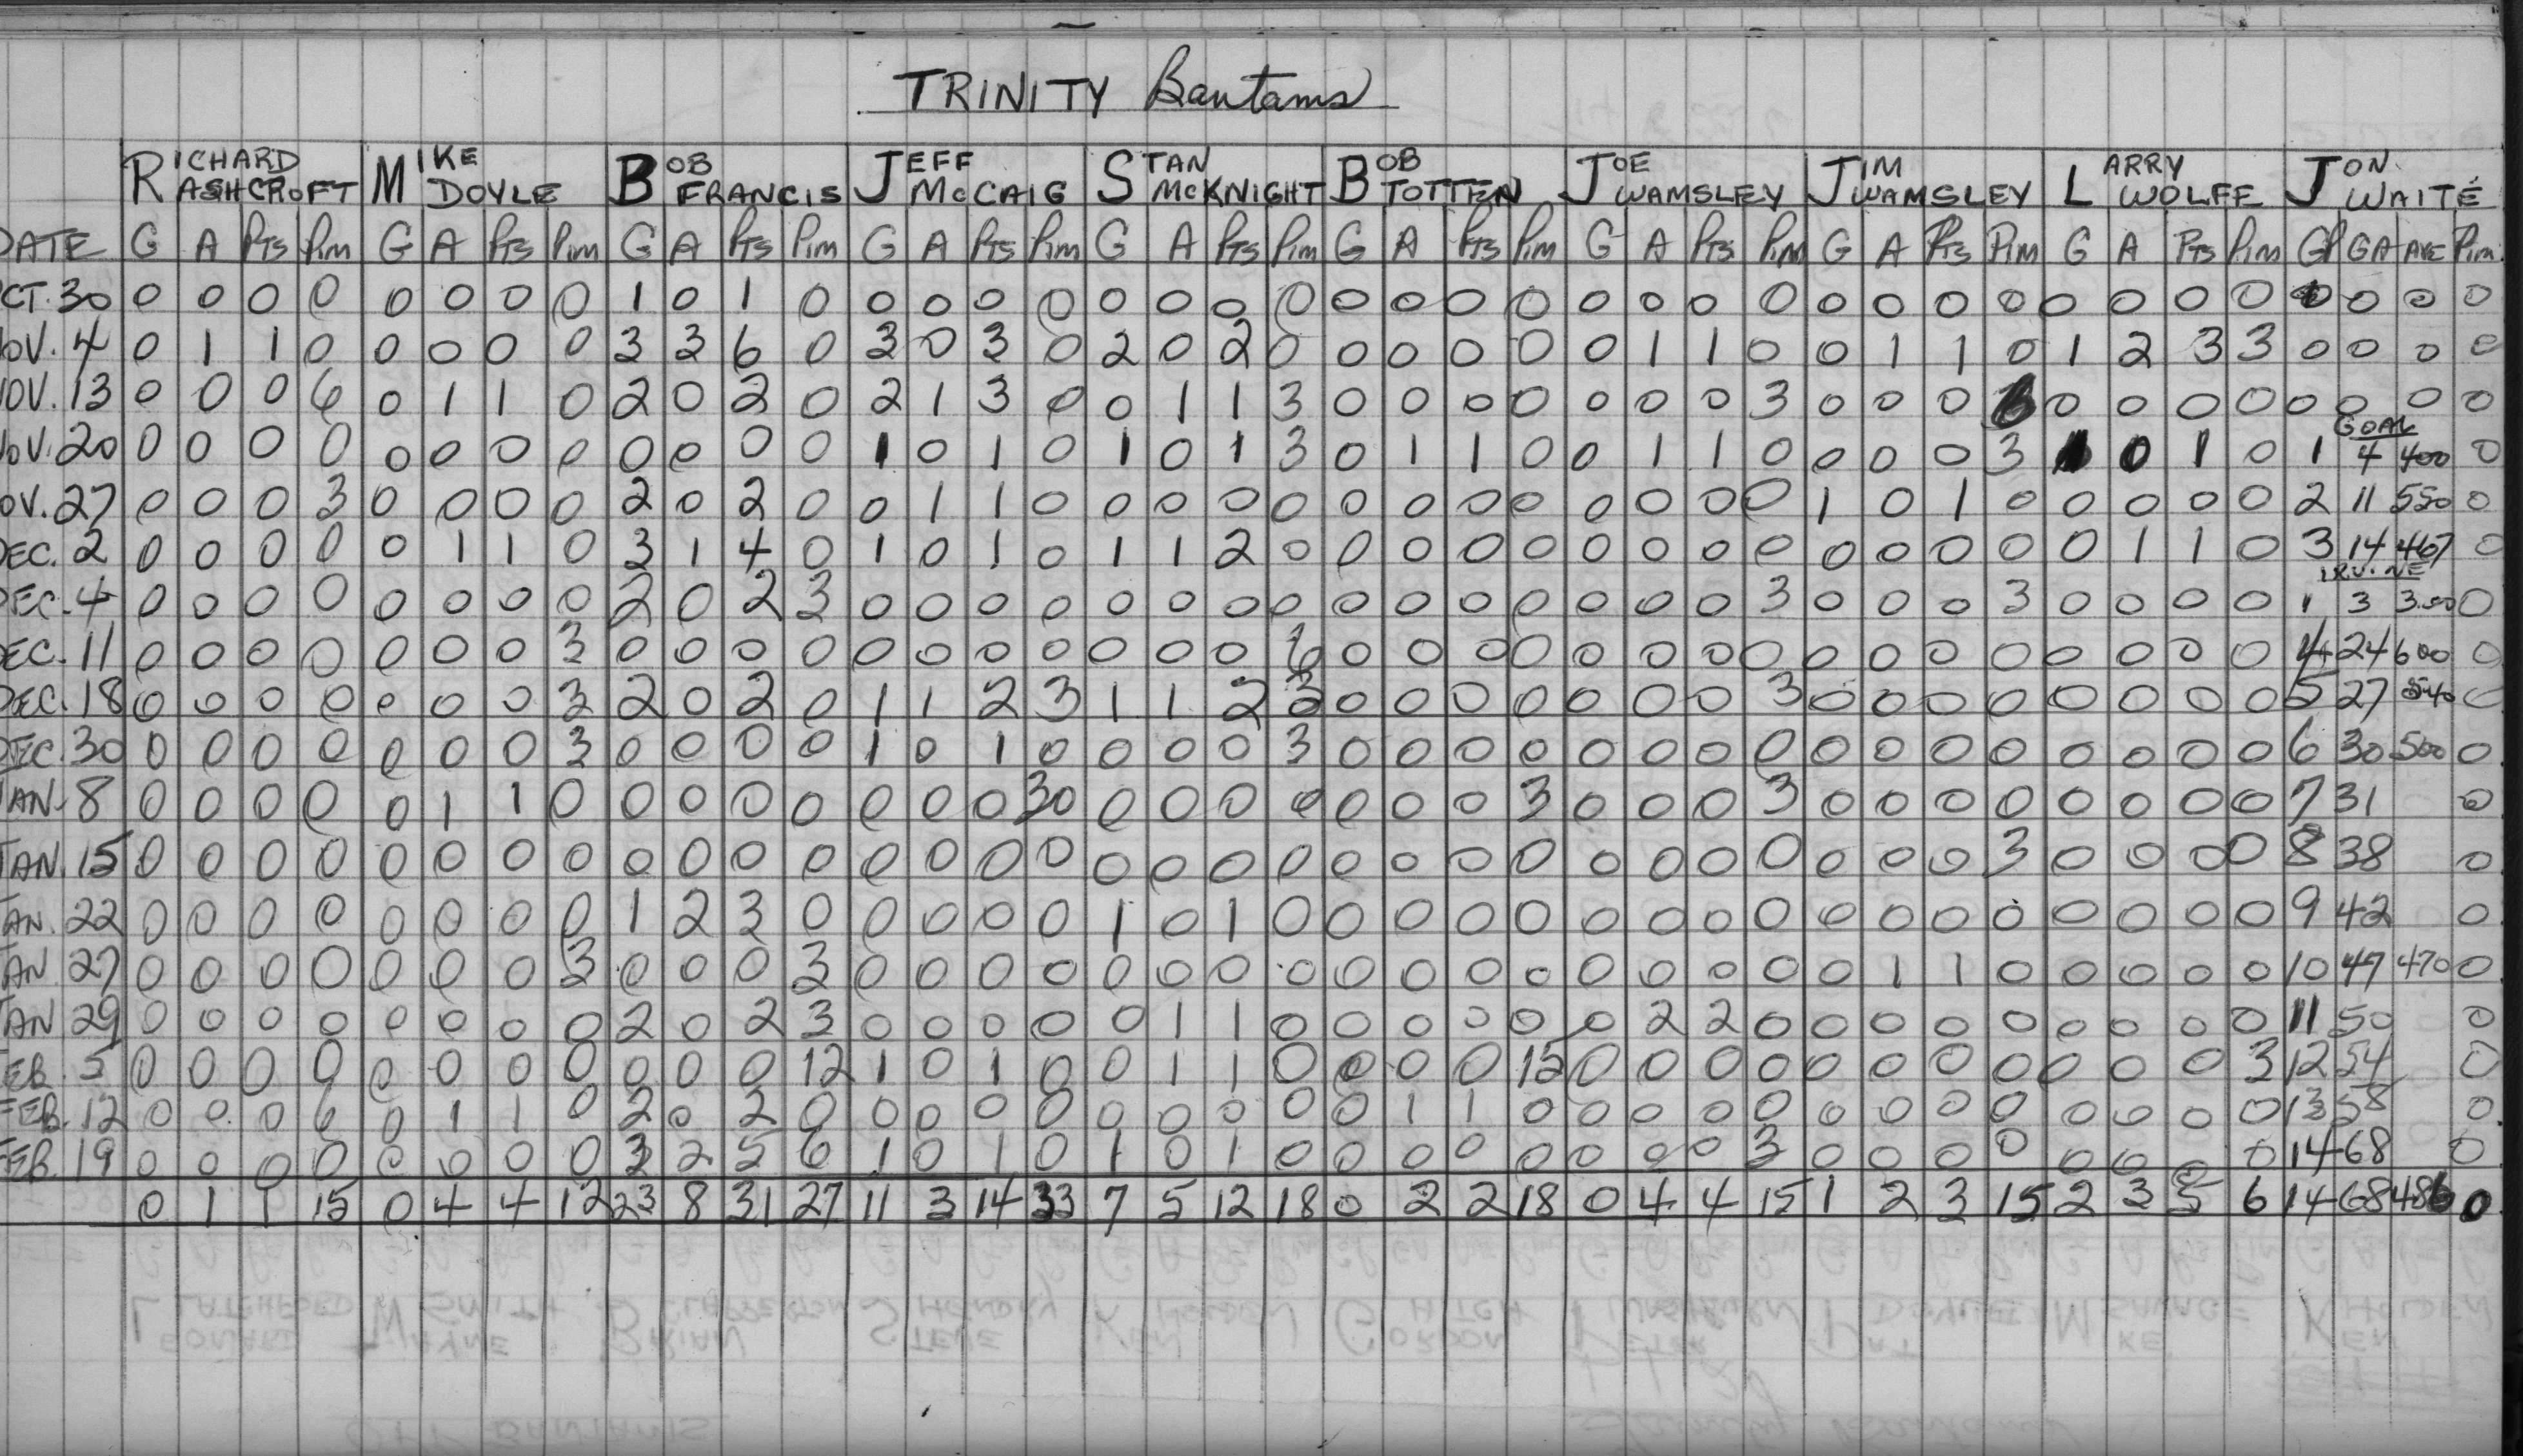 TRINITY Bantams
RICHARD ASHCROFT MIKE DOYLE BOB FRANCIS JEFF McCAIG STAN McKNIGHT BOB TOTTEN JOE WAMSLEY JIM WAMSLEY LARRY WOLFE JON WAITE
DATE G A Pts Pim G A Pts Pim G A Pts Pim G A Pts Pim G A Pts Pim G A Pts Pim G A Pts Pim G A Pts Pim G A Pts Pim GP GA AVE Pim
CT. 30 0 0 0 0 0 0 0 0 1 0 1 0 0 0 0 0 0 0 0 0 0 0 0 0 0 0 0 0 0 0 0 0 0 0 0 0 0 0 0 0
OV. 4 0 1 1 0 0 0 0 0 3 3 6 0 3 0 3 0 2 0 2 0 0 0 0 0 0 1 1 0 0 1 1 0 1 2 3 3 0 0 0 0
OV. 13 0 0 0 6 0 1 1 0 2 0 2 0 2 1 3 0 0 1 1 3 0 0 0 0 0 0 0 3 0 0 0 0 0 0 0 0 0 0 0
GOAL
OV. 20 0 0 0 0 0 0 0 0 0 0 0 0 1 0 1 0 1 0 1 3 0 1 1 0 0 1 1 0 0 0 0 3 1 0 1 0 1 4 400 0
OV. 27 0 0 0 3 0 0 0 0 2 0 2 0 0 1 1 0 0 0 0 0 0 0 0 0 0 0 0 0 1 0 1 0 0 0 0 0 2 11 550 0
DEC. 2 0 0 0 0 0 1 1 0 3 1 4 0 1 0 1 0 1 1 2 0 0 0 0 0 0 0 0 0 0 0 0 0 0 1 1 0 3 14 467 0
IRVINE
EC. 4 0 0 0 0 0 0 0 0 2 0 2 3 0 0 0 0 0 0 0 0 0 0 0 0 0 0 0 3 0 0 0 3 0 0 0 0 1 3 3.00 0
EC. 11 0 0 0 0 0 0 0 3 0 0 0 0 0 0 0 0 0 0 0 6 0 0 0 0 0 0 0 0 0 0 0 0 0 0 0 0 4 24 600 0
DEC. 18 0 0 0 0 0 0 0 3 2 0 2 0 1 1 2 3 1 1 2 3 0 0 0 0 0 0 0 3 0 0 0 0 0 0 0 0 5 27 540 0
DEC. 30 0 0 0 0 0 0 0 3 0 0 0 0 1 0 1 0 0 0 0 3 0 0 0 0 0 0 0 0 0 0 0 0 0 0 0 0 6 30 500 0
AN. 8 0 0 0 0 0 1 1 0 0 0 0 0 0 0 0 30 0 0 0 0 0 0 0 3 0 0 0 3 0 0 0 0 0 0 0 0 7 31 0
AN. 15 0 0 0 0 0 0 0 0 0 0 0 0 0 0 0 0 0 0 0 0 0 0 0 0 0 0 0 0 0 0 0 3 0 0 0 0 8 38 0
AN. 22 0 0 0 0 0 0 0 0 1 2 3 0 0 0 0 0 1 0 1 0 0 0 0 0 0 0 0 0 0 0 0 0 0 0 0 0 9 42 0
AN 27 0 0 0 0 0 0 0 3 0 0 0 3 0 0 0 0 0 0 0 0 0 0 0 0 0 0 0 0 0 1 1 0 0 0 0 0 10 47 470 0
AN 29 0 0 0 0 0 0 0 0 2 0 2 3 0 0 0 0 0 1 1 0 0 0 0 0 0 2 2 0 0 0 0 0 0 0 0 0 11 50 0
EB. 5 0 0 0 0 0 0 0 0 0 0 0 12 1 0 1 0 0 1 1 0 0 0 0 15 0 0 0 0 0 0 0 0 0 0 0 3 12 54 0
FEB. 12 0 0 0 6 0 1 1 0 2 0 2 0 0 0 0 0 0 0 0 0 0 1 1 0 0 0 0 0 0 0 0 0 0 0 0 0 13 58 0
EB. 19 0 0 0 0 0 0 0 0 3 2 5 6 1 0 1 0 1 0 1 0 0 0 0 0 0 0 0 3 0 0 0 0 0 0 0 0 14 68 0
0 1 1 15 0 4 4 12 23 8 31 27 11 3 14 33 7 5 12 18 0 2 2 18 0 4 4 15 1 2 3 15 2 3 5 6 14 68 486 0